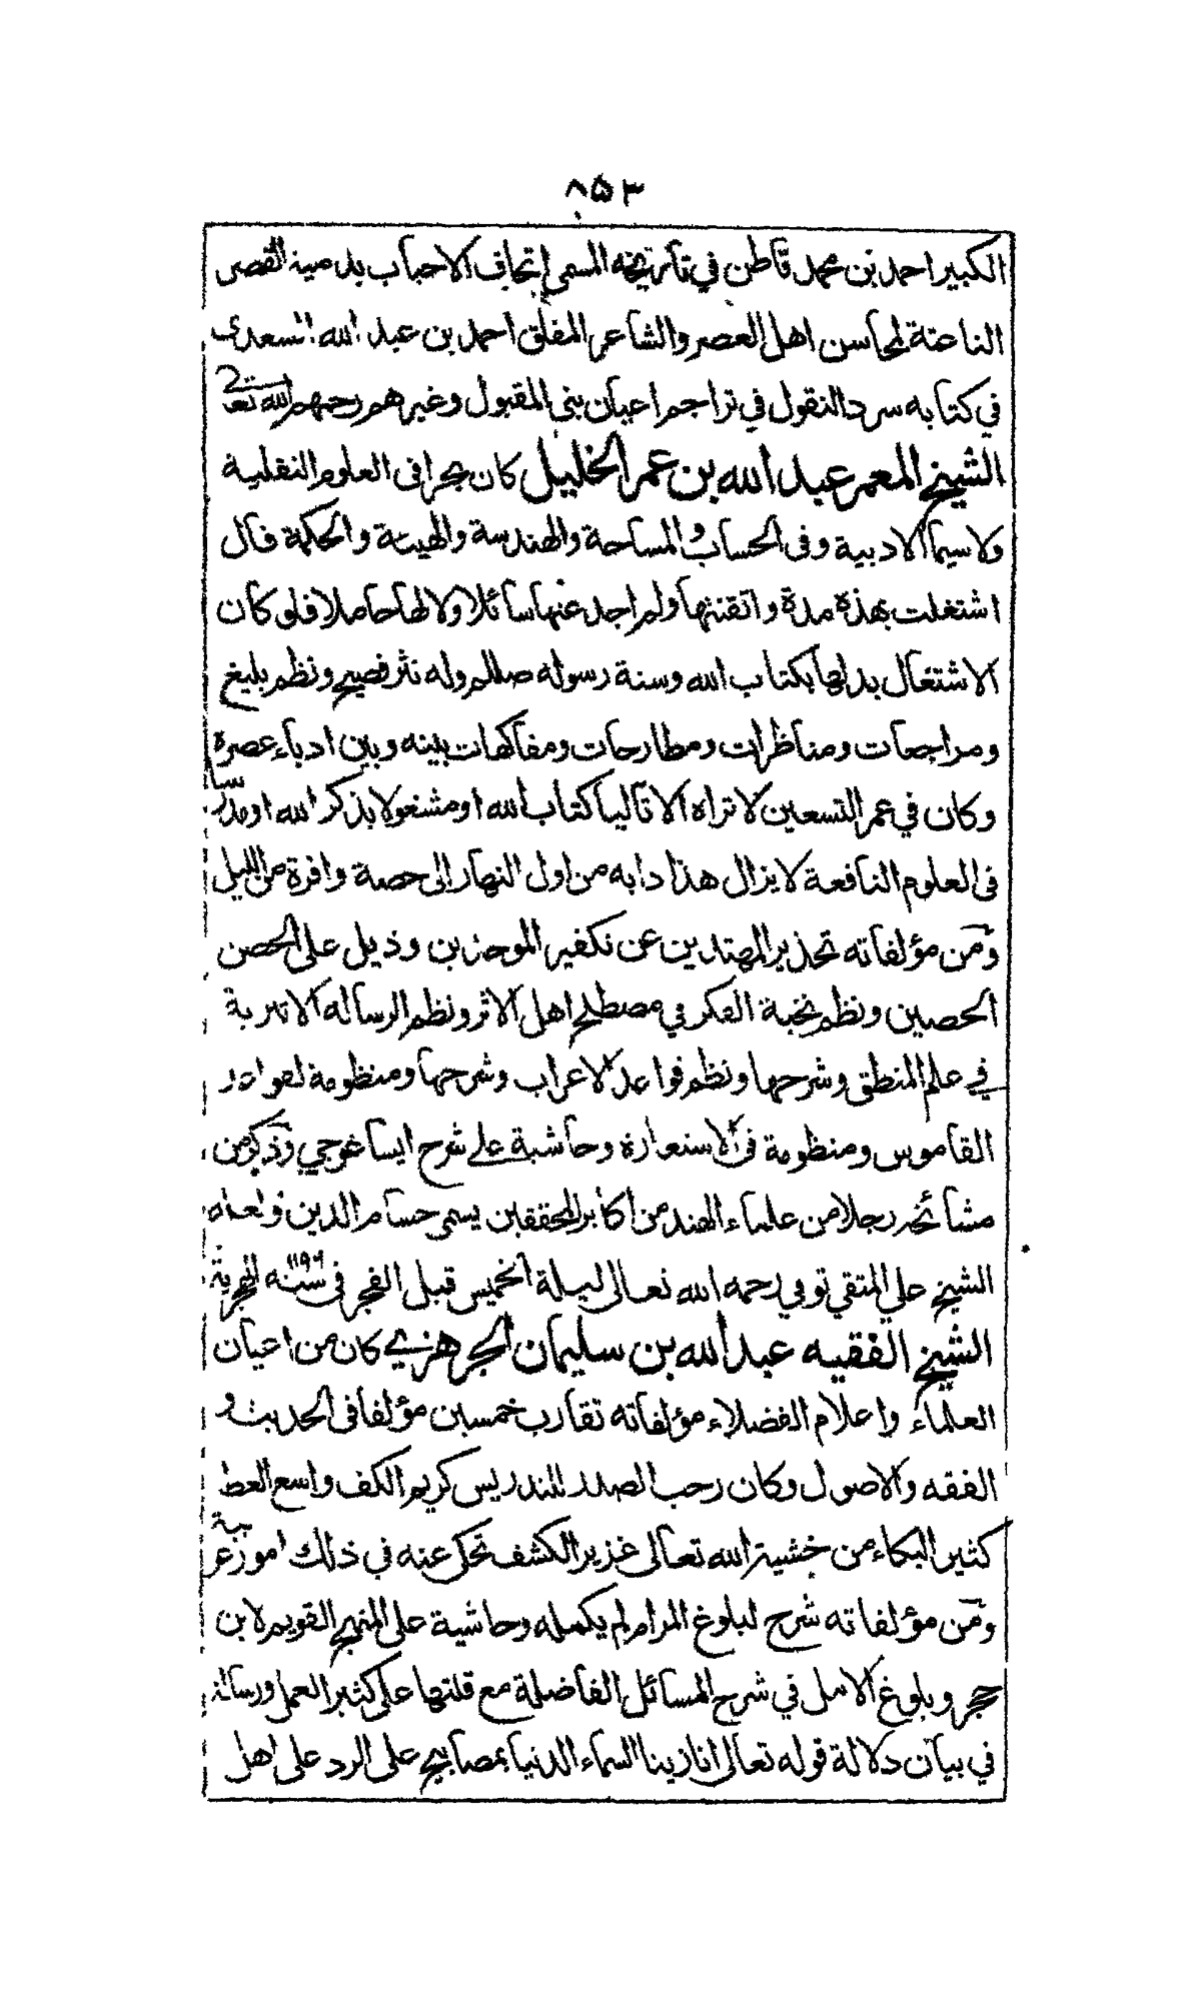 ٨٥٣
الكبير احمد بن محمد قاطن في تاريخه المسمى إتحاف الاحباب بدمية القصر
الناعتة لمحاسن اهل العصر والشاعر المفلق احمد بن عبد الله السعدى
في كتابه سرد النقول في تراجم اعيان بنى المقبول وغيرهم رحمهم الله تعا
الشيخ المعمر عبد الله بن عمر الخليل كان بحرا فى العلوم النقلية
ولاسيما الادبية وفى الحساب والمساحة والهندسة والهيئة والحكمة قال
اشتغلت بهذه مدة واتقنتها ولم اجد عنها سائلا ولا لها حاملا فلو كان
الاشتغال بدلها بكتاب الله وسنة رسوله صللم وله نثر فصيح ونظم بليغ
ومراجعات ومناظرات ومطارحات ومفاكهات بينه وبين ادباء عصره
وكان في عمر التسعين لا تراه الا تاليا كتاب الله او مشغولا بذكر الله او مدرسا
فى العلوم النافعة لا يزال هذا دابه من اول النهار الى حصة وافرة من الليل
ومن مؤلفاته تحذير المهتدين عن تكفير الموحدين وذيل على الحصن
الحصين ونظم نخبة الفكر في مصطلح اهل الاثر ونظم الرسالة الاثيرية
في علم المنطق وشرحها ونظم قواعد الاعراب وشرحها ومنظومة لقواعد
القاموس ومنظومة فى الاستعارة وحاشية على شرح ايساغوجي وذكر من
مشائخه رجلا من علماء الهند من اكابر المحققين يسمى حسام الدين ولعله
الشيخ علي المتقي توفي رحمه الله تعالى ليلة الخميس قبل الفجر فى سنة ١١٩٦ الهجرية
الشيخ الفقيه عبد الله بن سليمان الجرهزي كان من اعيان
العلماء واعلام الفضلاء مؤلفاته تقارب خمسين مؤلفا فى الحديث و
الفقه والاصول وكان رحب الصدر للتدريس كريم الكف واسع العطا
كثير البكاء من خشية الله تعالى غزير الكشف تحكى عنه في ذلك امور غريبة
ومن مؤلفاته شرح لبلوغ المرام لم يكمله وحاشية على المنهج القويم لابن
حجر وبلوغ الامل في شرح المسائل الفاضلة مع قلتها على كثير العمل ورسالة
في بيان دلالة قوله تعالى انا زينا السماء الدنيا بمصابيح على الرد على اهل